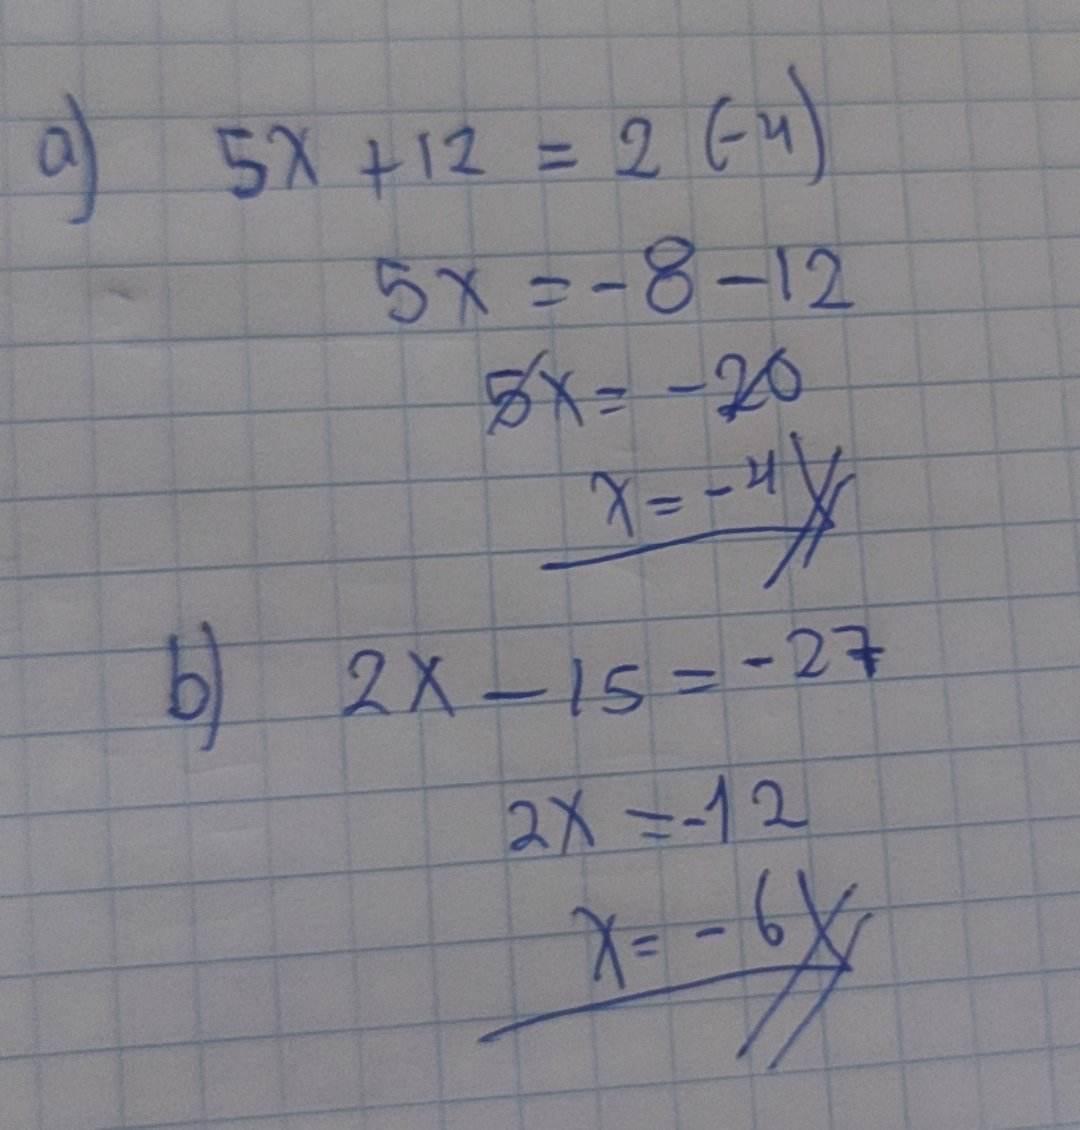 a) 5x + 12 = 2 (-4)
5x = -8 - 12
5x = -20
x = -4
b) 2x - 15 = -27
2x = -12
x = -6